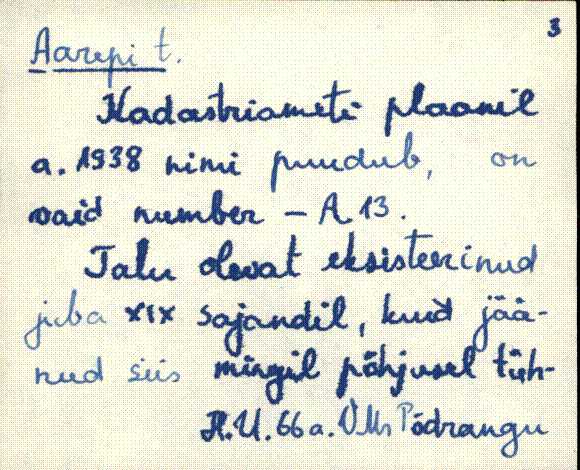 3
Aarepi t.
Kadastriameti plaanil
a. 1938 nimi puudub, on
vaid number – A 13.
Talu olevat eksisteerinud
juba XIX sajandil, kuid jää-
nud siis mingil põhjusel tüh-
H.U. 66 a. VMs Põdrangu